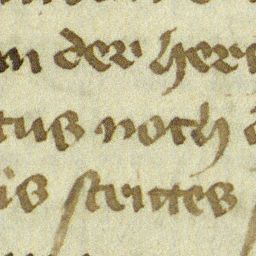 n der hers
tus noch d
is strites